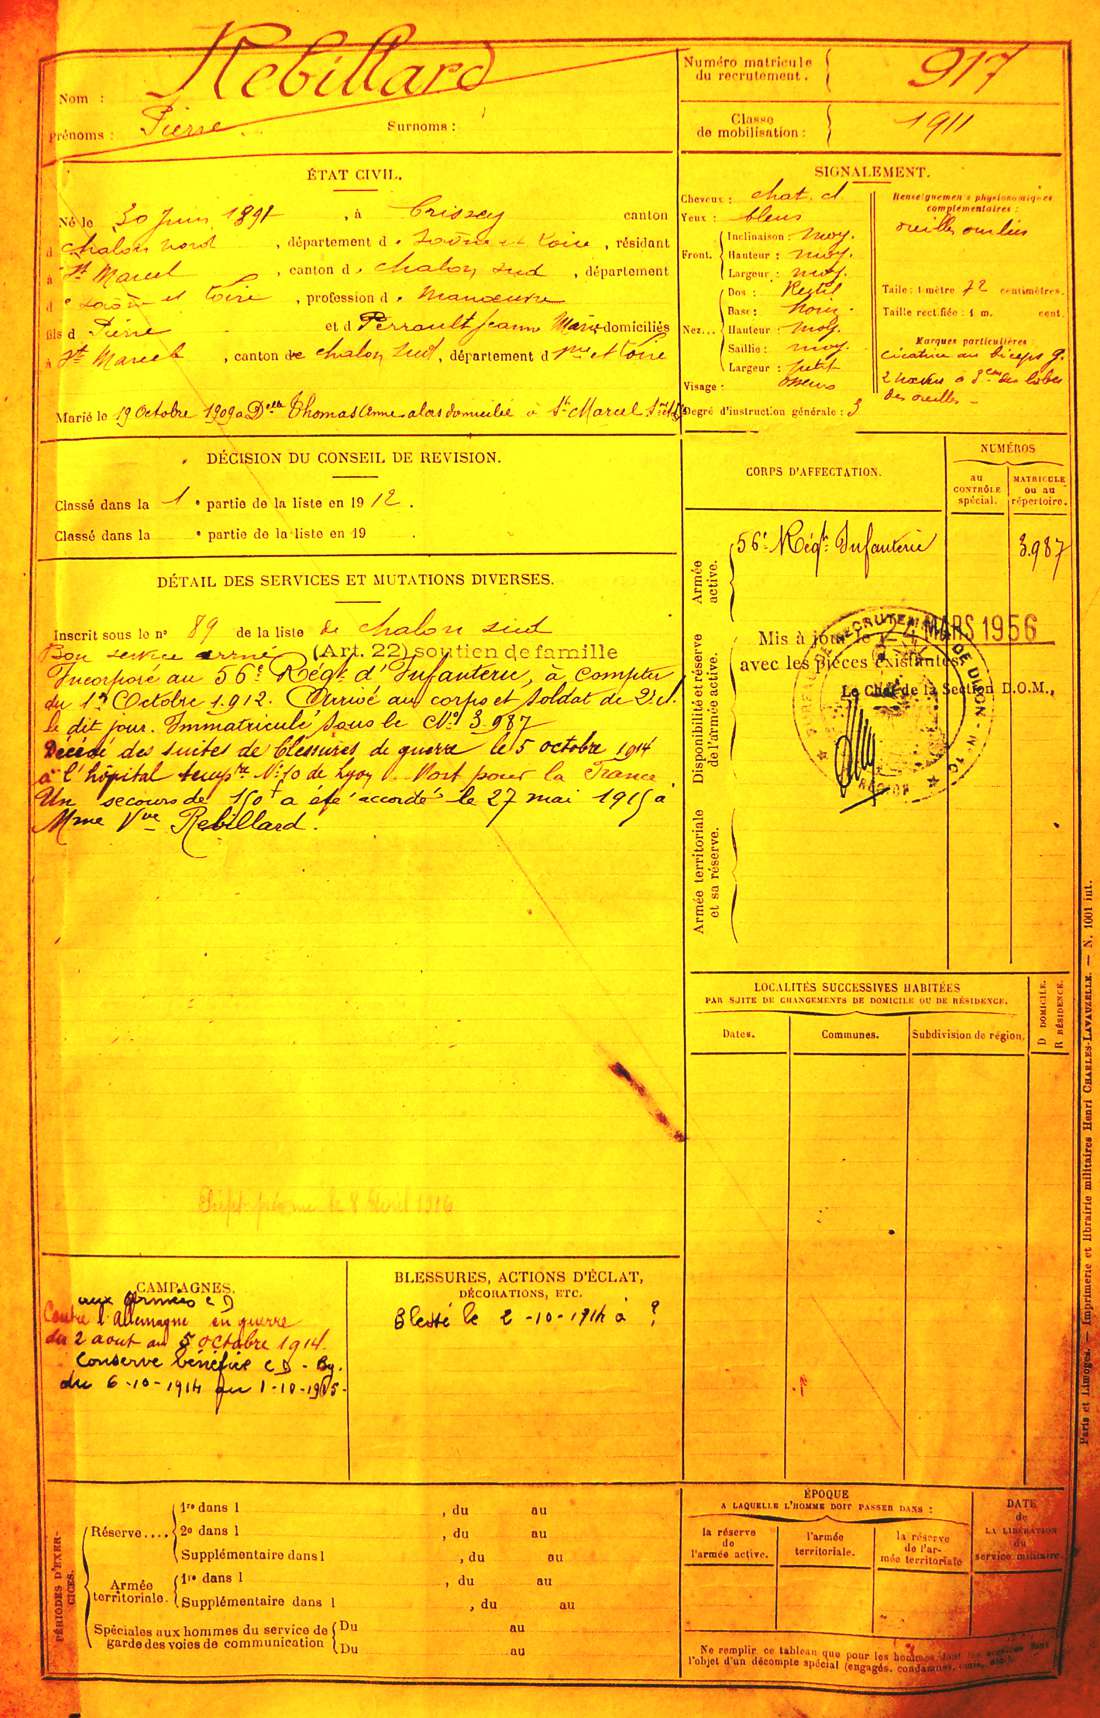 Nom : Rebillard
Prénoms : Pierre Surnoms :
Numéro matricule
du recrutement. 917
Classe
de mobilisation : 1911
ÉTAT CIVIL.
Né le 30 Juin 1891, à Crissey canton
d Chalon nord, département de Saône et Loire, résidant
à St Marcel, canton de Chalon Sud, département
de Saône et Loire, profession de Manœuvre
fils d Pierre et d Perrault Jeanne Marie domiciliés
à St Marcel, canton de Chalon Sud, département d et Loire
Marié le 19 Octobre 1909 à Delle Thomas alors domiciliée à St Marcel
SIGNALEMENT.
Cheveux : chat. cl
Yeux : bleus
Front. Inclinaison : moy.
Hauteur : moy.
Largeur : moy.
Nez... Dos : Rectil
Base :
Hauteur : moy.
Saillie : moy.
Largeur : petit
Visage :
Renseignements physionomiques
complémentaires :
oreilles
Taille : 1 mètre 72 centimètres.
Taille rectifiée : 1 m. cent.
Marques particulières
cicatrice au biceps g.
des oreilles
Degré d'instruction générale : 3
DÉCISION DU CONSEIL DE REVISION.
Classé dans la 1e partie de la liste en 1912.
Classé dans la e partie de la liste en 19 .
DÉTAIL DES SERVICES ET MUTATIONS DIVERSES.
Inscrit sous le n° 89 de la liste de Chalon Sud
Bon service armé (Art. 22) soutien de famille
Incorporé au 56e Régt d'Infanterie, à compter
du 1er Octobre 1912. Arrivé au corps et soldat de 2e cl.
le dit jour. Immatriculé sous le No 3.987
Décédé des suites de blessures de guerre le 5 octobre 1914
à l'hôpital tempre No 10 de Lyon. Mort pour la France
Un secours de 150f a été accordé le 27 mai 1915 à
Mme Vve Rebillard.
le 8 Avril 1916
CORPS D'AFFECTATION.
NUMÉROS
au
CONTRÔLE
spécial.
MATRICULE
ou au
répertoire.
Armée
active.
56e Régt Infanterie 3.987
Disponibilité et réserve
de l'armée active.
Mis à jour le 24 MARS 1956
avec les pièces existantes
Le Chef de la Section D.O.M.,
BUREAU DE RECRUTEMENT DE DIJON
RÉGION
Armée territoriale
et sa réserve.
LOCALITÉS SUCCESSIVES HABITÉES
PAR SUITE DE CHANGEMENTS DE DOMICILE OU DE RÉSIDENCE.
Dates.
Communes.
Subdivision de région.
D DOMICILE.
R RÉSIDENCE.
CAMPAGNES.
aux Armées C D
Contre l'Allemagne en guerre
du 2 aout au 5 octobre 1914.
Conserve bénéfice CD - By.
du 6-10-1914 au 1-10-1915.
BLESSURES, ACTIONS D'ÉCLAT,
DÉCORATIONS, ETC.
Blessé le 2-10-1914 à ?
PÉRIODES D'EXER-
CICES.
Réserve....
1re dans l , du au
2e dans l , du au
Supplémentaire dans l , du au
Armée
territoriale.
1re dans l , du au
Supplémentaire dans l , du au
Spéciales aux hommes du service de
garde des voies de communication
Du au
Du au
ÉPOQUE
A LAQUELLE L'HOMME DOIT PASSER DANS :
la réserve
de
l'armée active.
l'armée
territoriale.
la réserve
de l'ar-
mée territoriale
DATE
de
LA LIBÉRATION
du
service militaire.
Ne remplir ce tableau que pour les hommes
l'objet d'un décompte spécial (engagés, condamnés, omis, etc.).
Paris et Limoges. — Imprimerie et librairie militaires Henri CHARLES-LAVAUZELLE. — N. 1001 int.